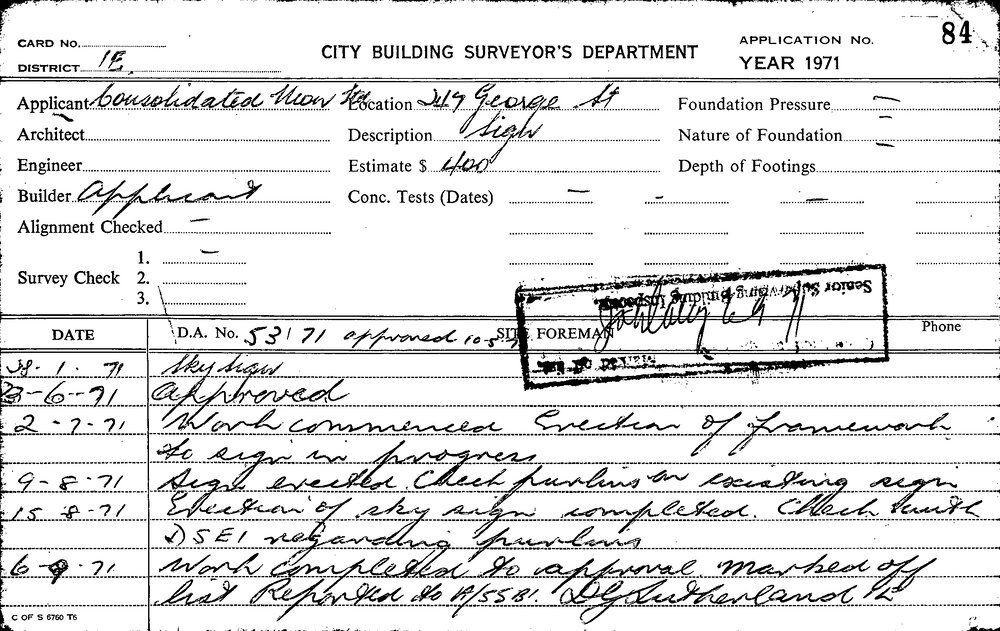 84
CARD No.
CITY BUILDING SURVEYOR'S DEPARTMENT
APPLICATION No.
DISTRICT 1E.
YEAR 1971
Applicant Consolidated Neon Ltd Location 249 George St Foundation Pressure —
Architect Description Sign Nature of Foundation —
Engineer Estimate $ 400 Depth of Footings —
Builder Applicant Conc. Tests (Dates) — - —
Alignment Checked —
Survey Check 1. —
2.
3.
Senior Supervising Building Inspector.
6 9 71
Marked off list
DATE D.A. No. 53/71 approved 10-5-71 SITE FOREMAN Phone
28.1.71 Sky sign
23-6-71 Approved
2-7-71 Work commenced Erection of framework
to sign in progress
9-8-71 Sign erected. Check purlins on existing sign
15-8-71 Erection of sky sign completed. Check with
DSEI regarding purlins
6-9-71 Work completed to approval. Marked off
list Reported to A/SSBI. DG Sutherland 1E
C OF S 6760 T6